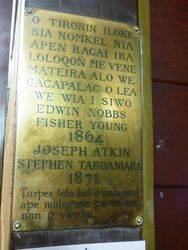 O TIRONIN ILOKE
SIA NOMKEL NIA
APEN RAGAI IRA
LOLOQON ME VENE
MATEIRA ALO WE
GAGAPALAG O LEA
WE WIA I SIWO
EDWIN NOBBS
FISHER YOUNG
1864
JOSEPH ATKIN
STEPHEN TAROANIARA
1871
Turpea lele kel o malagene
ape malagene
nan o vavia